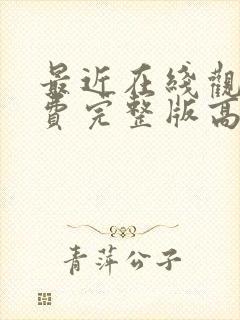 最近在线觀
费完整版高
青萍公子